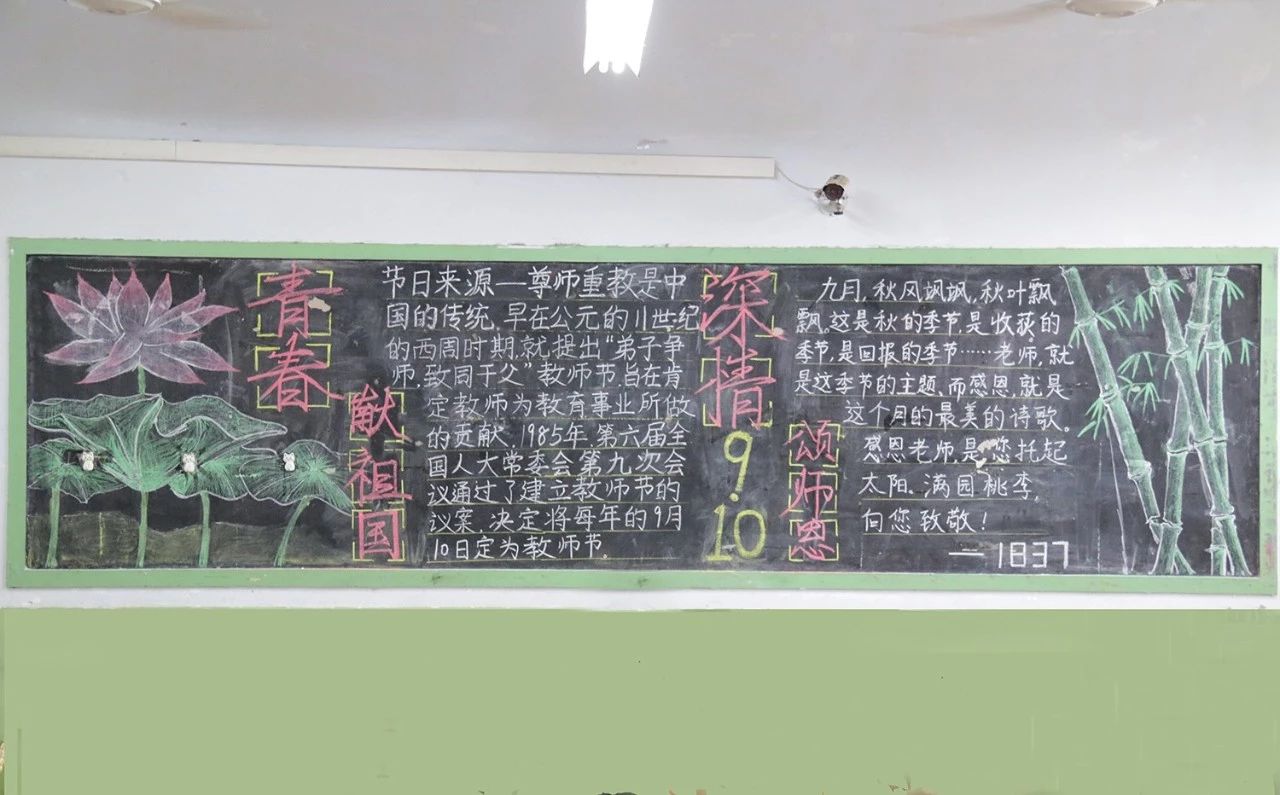 青春
献祖国
节日来源—尊师重教是中
国的传统,早在公元的11世纪
的西周时期,就提出“弟子争
师,致同于父”教师节旨在肯
定教师为教育事业所做
的贡献,1985年,第六届全
国人大常委会第九次会
议通过了建立教师节的
议案,决定将每年的9月
10日定为教师节。
深情
9.10
颂师恩
九月,秋风飒飒,秋叶飘
飘,这是秋的季节,是收获的
季节,是回报的季节……老师,就
是这季节的主题,而感恩,就是
这个月的最美的诗歌。
感恩老师是您托起
太阳、满园桃李,
向您致敬!
—1837